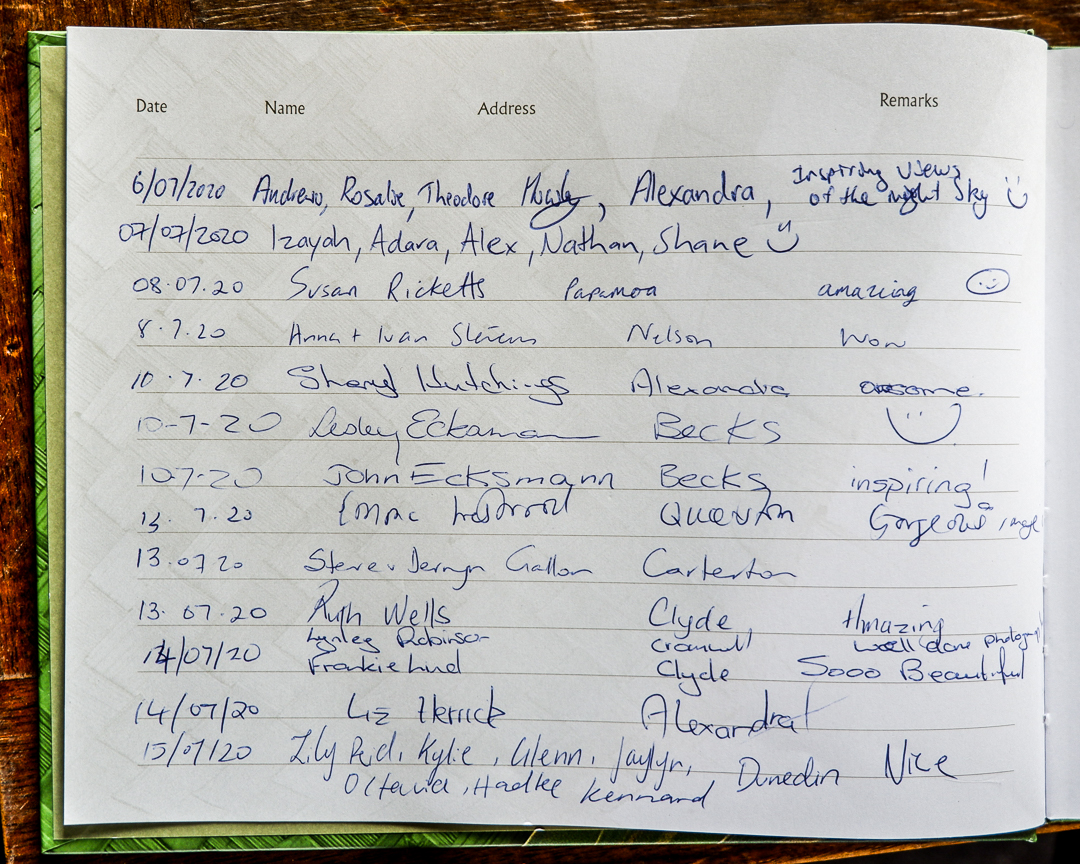 Date Name Address Remarks
6/07/2020 Andrew, Rosalie, Theodore , Alexandra, Inspiring Views
of the night Sky
07/07/2020 Izayah, Adara, Alex, Nathan, Shane
08.07.20 Susan Ricketts Papamoa amazing
8.7.20 Anna + Ivan Stevens Nelson Wow
10.7.20 Sheryl Hutchings Alexandra awsome.
10-7-20 Lesley Eckamann Becks
10-7-20 John Ecksmann Becks inspiring!
13.7.20 Emma Gorgeous image
13.07.20 Steve + Gallon Carterton
13.07.20 Ruth Wells Clyde Amazing
Lynley Robinson Cromwell well done
14/07/20 Frankie Lund Clyde Sooo Beautiful
14/07/20 Liz Herrick Alexandra
15/07/20 Lily Reid, Kylie, Glenn, Jaylyn, Dunedin Nice
Octavia, Hadlee Kennard